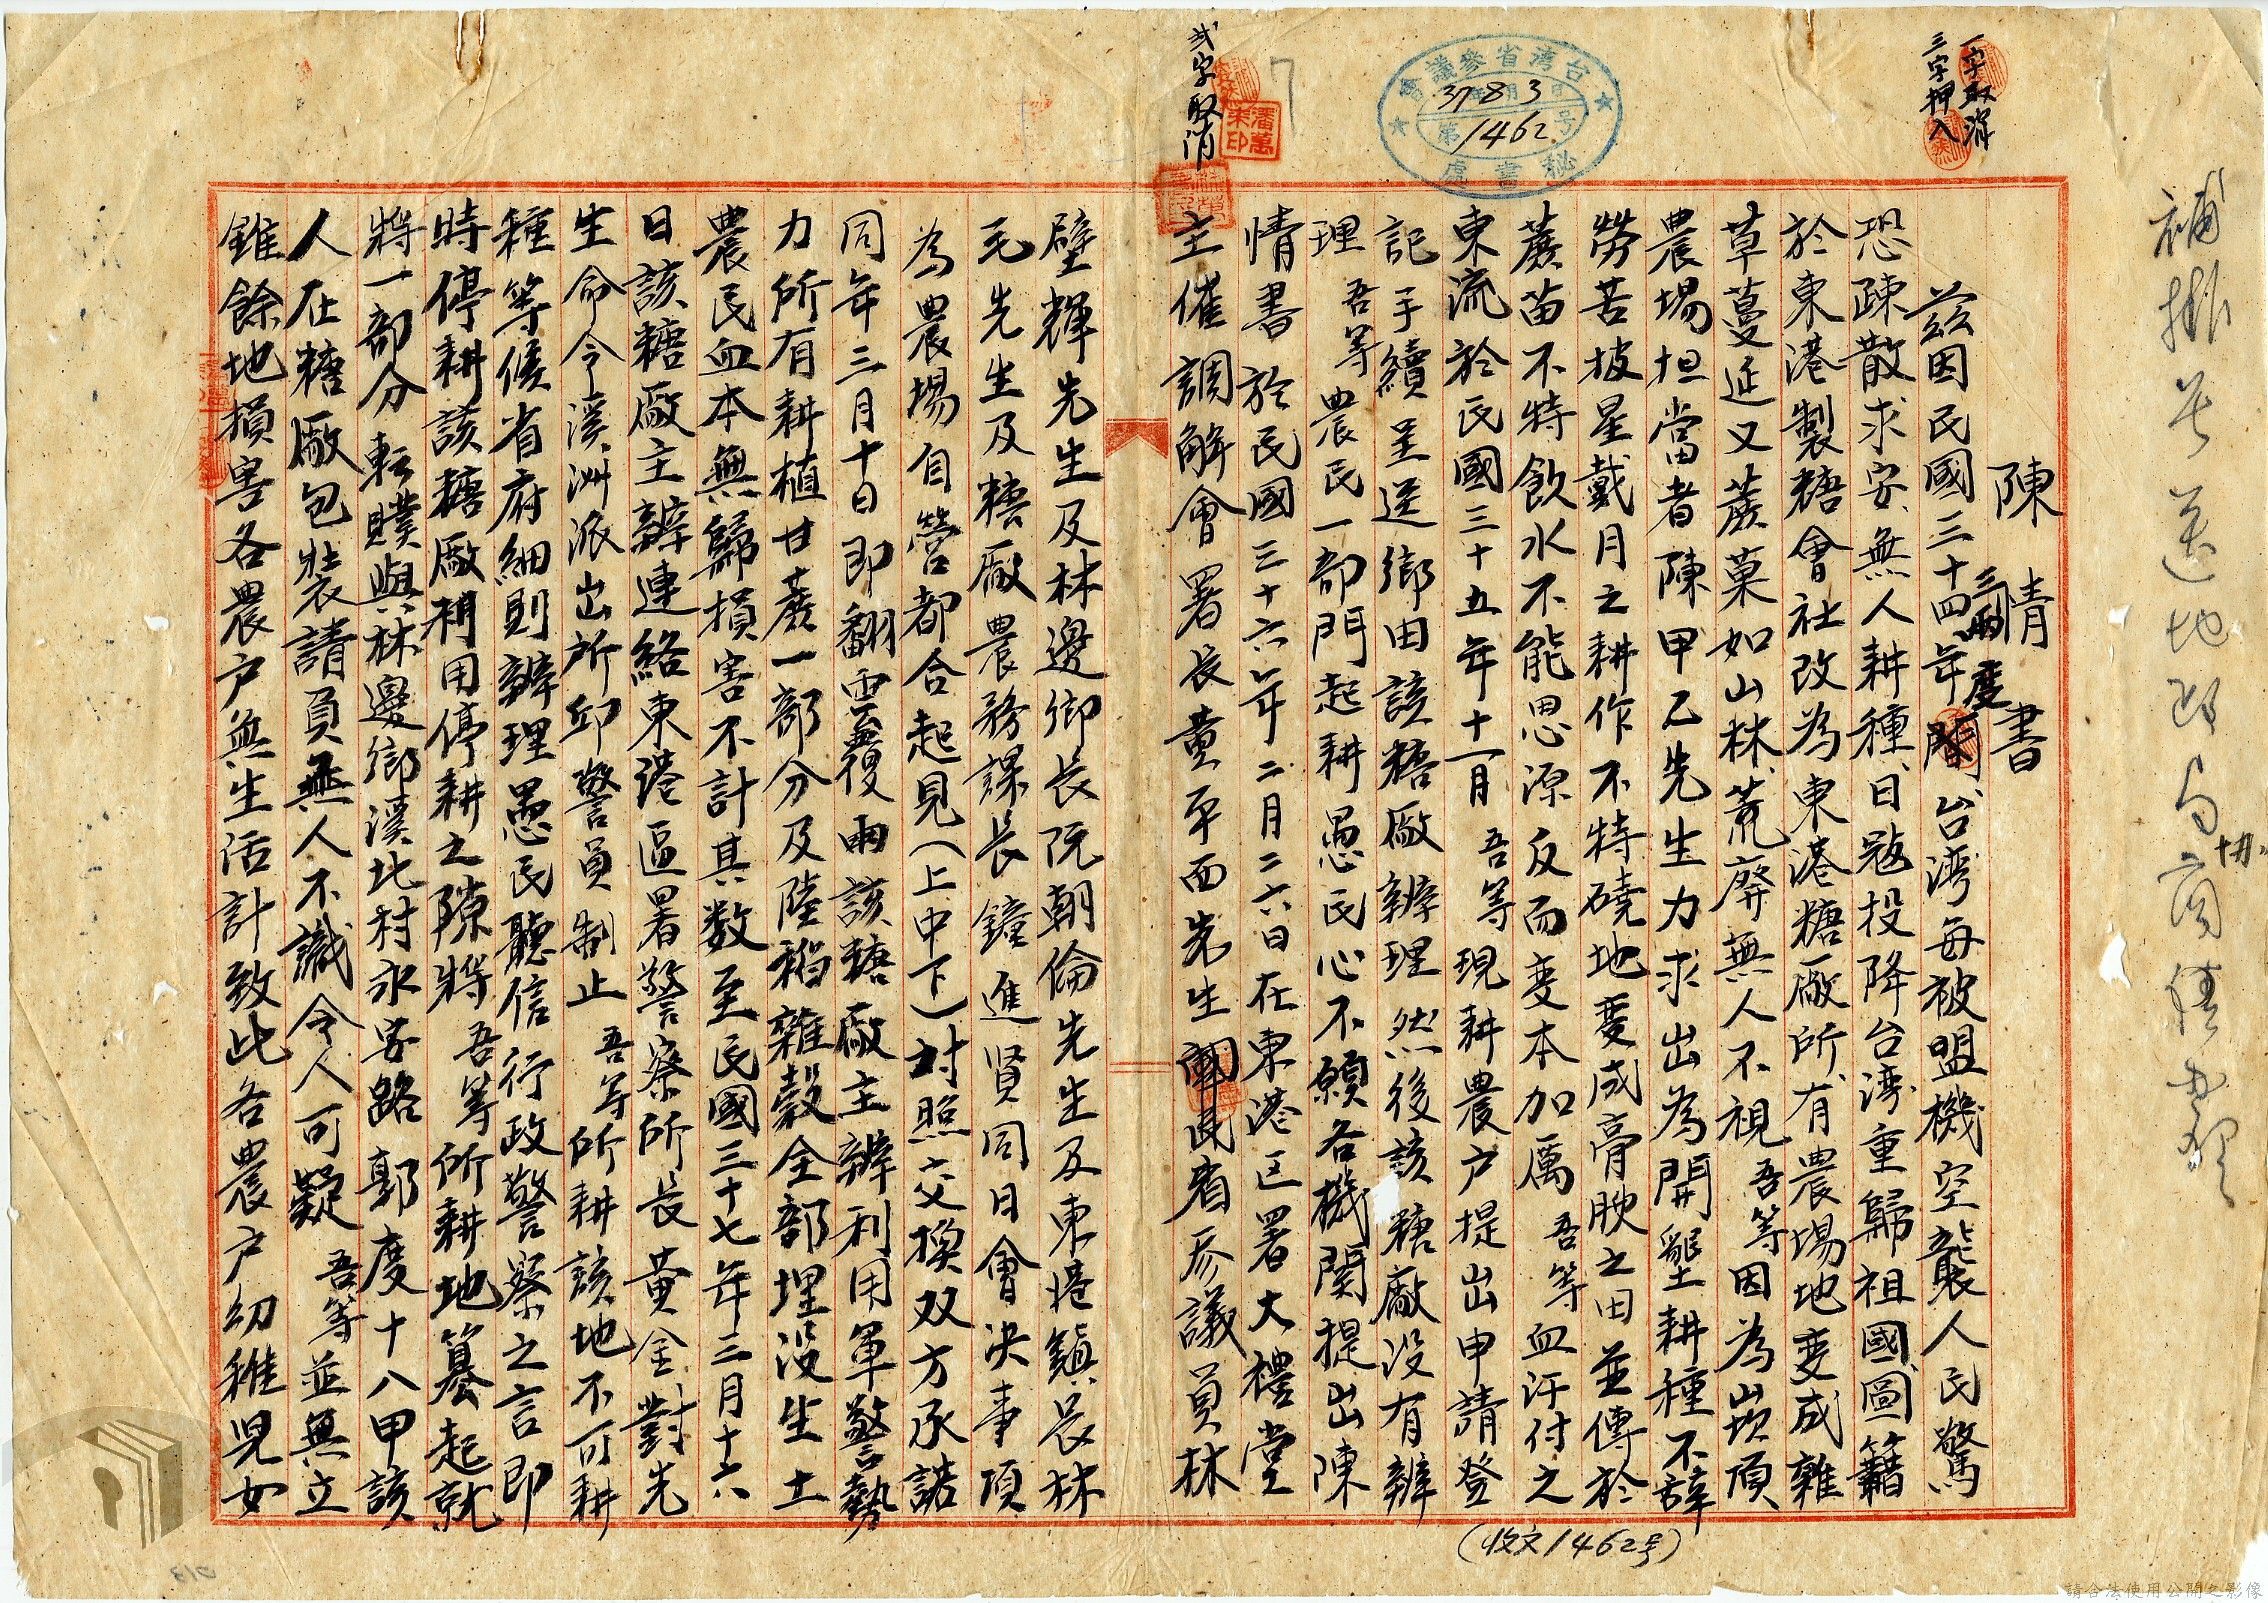 一字取消
三字押入
台灣省參議會
37 8 3
第1462号
秘書處
弍字取消
潘萬來印
陳情書
茲因民國三十四年三兩度間台湾每被盟機空襲人民驚
恐疎散求安無人耕種日寇投降台湾重歸祖國圖籍
於東港製糖會社改為東港糖廠所有農場地变成雜
草蔓延又蔗菓如山林荒廃無人不視吾等因為山崁頂
農場担當者陳甲乙先生力求出為開墾耕種不辞
勞苦披星戴月之耕作不特磽地变成膏腴之田並傳於
蔗苗不特飲水不能思源反而变本加厲吾等血汗付之
東流於民國三十五年十一月吾等現耕農户提出申請登
記手續呈送鄉由該糖廠辦理然後該糖廠没有辦
理吾等農民一部門起耕愚民心不願各機関提出陳
情書於民國三十六年二月二六日在東港区署大禮堂
主催調解會署長董平西先生 省参議員林
壁輝先生及林邊鄉長阮朝倫先生及東港鎮長林
毛先生及糖廠農務課長鐘進賢同日會决事項
為農場自營都合起見(上中下)対照交換双方承諾
同年三月十日即翻雲覆雨該糖廠主辦利用軍警勢
力所有耕植甘蔗一部分及陸稻雜穀全部埋没生土
農民血本無歸損害不計其数至民國三十七年三月十六
日該糖廠主辦連絡東港區署警察所長黄金對先
生命令溪洲派出所邱警員制止吾等所耕該地不可耕
種等候省府細則辦理愚民聽信行政警察之言即
時停耕該糖廠利用停耕之隙將吾等所耕地篡起就
將一部分転贌與林邊鄉溪北村永安路郭度十八甲該
人在糖廠包裝請負無人不識令人可疑吾等並無立
錐餘地損害各農户無生活計致此各農户幼稚児女
(收文1462号)
請合法使用公開之影像